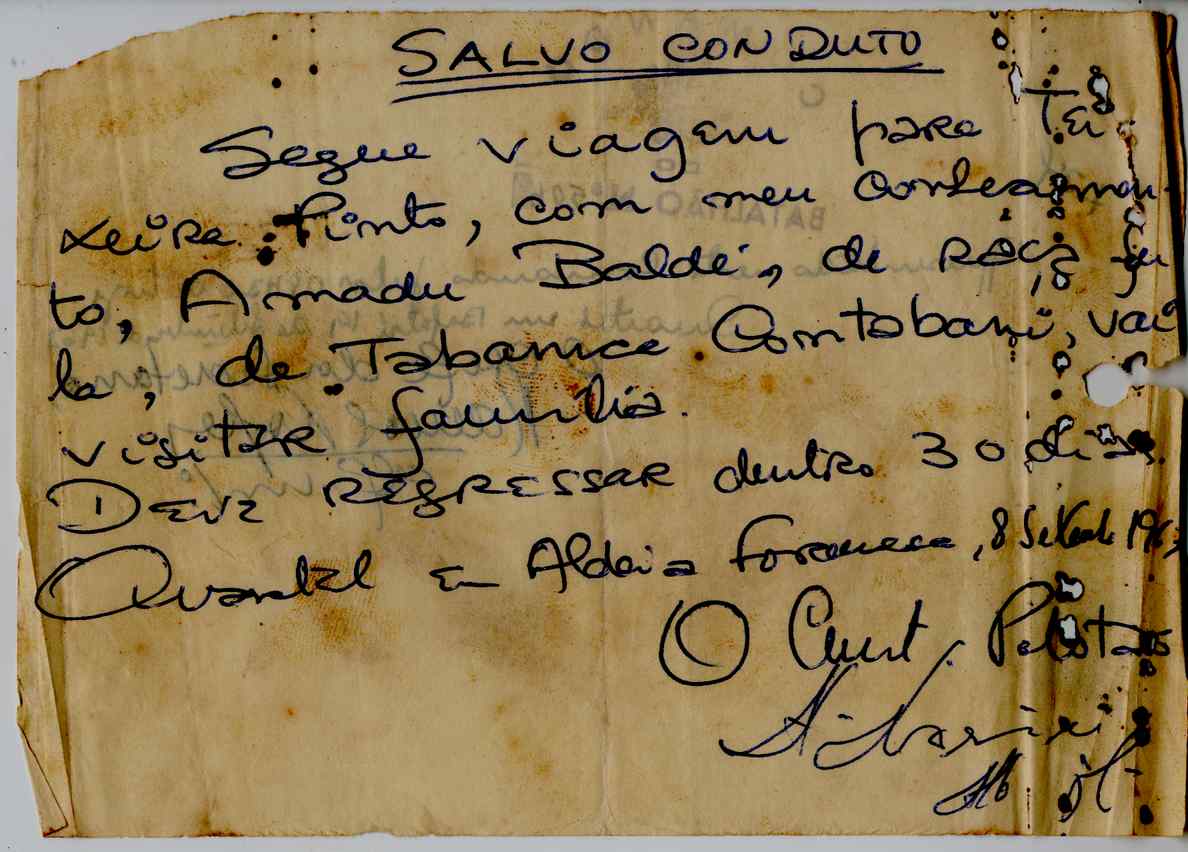 SALVO CONDUTO
Segue viagem para Tei-
xeira Pinto, com meu conhecimen-
to, Amadu Baldé, de raça fu
la, de Tabanca Contabani, vai
visitar família.
Deve regressar dentro 30 dias
Quartel em Aldeia Formosa, 8 Setembro 196
O Cmdt. Pelotão
BATALHÃO Nº